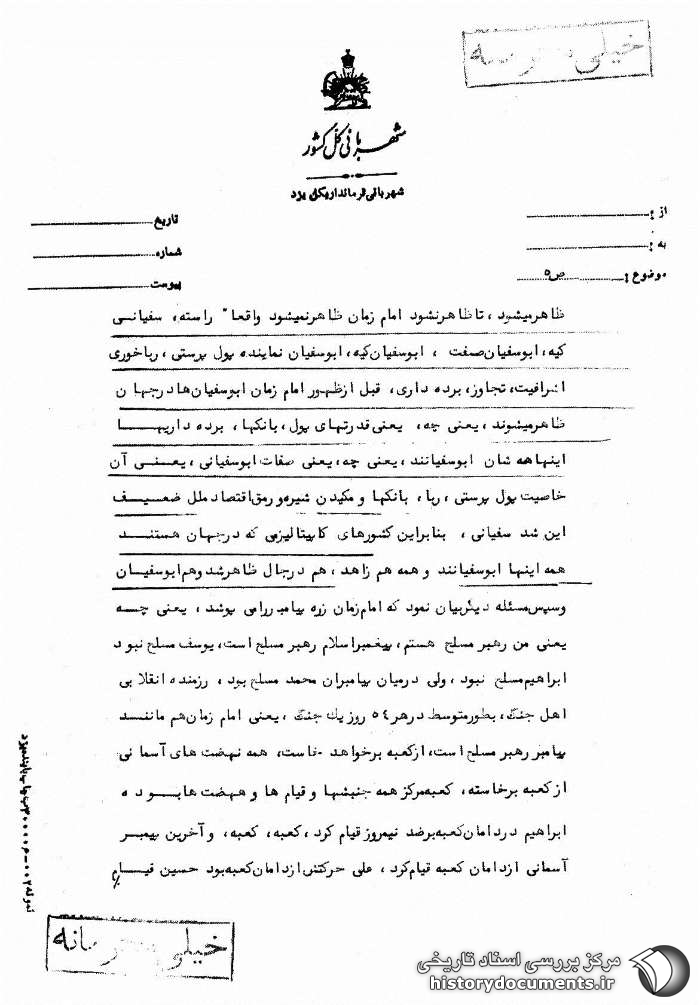 خیلی محرمانه
شهربانی کل کشور
شهربانی فرمانداریکل یزد
از :
به :
موضوع : ص ۵
تاریخ
شماره
پیوست
ظاهر میشود ، تا ظاهر نشود امام زمان ظاهر نمیشود واقعا" راسته، سفیانی
کیه، ابوسفیان صفت ، ابوسفیان کیه، ابوسفیان نماینده پول پرستی ، رباخوری
اشرافیت، تجاوز، برده داری، قبل از ظهور امام زمان ابوسفیان ها در جهان
ظاهر میشوند ، یعنی چه، یعنی قدرتهای پول ، بانکها ، برده داریهـا
اینها همه شان ابوسفیانند ، یعنی چه، یعنی صفات ابوسفیانی ، یعـنی آن
خاصیت پول پرستی ، ربا ، بانکها و مکیدن شیره و رمق اقتصاد ملل ضعـیـف
این شد سفیانی ، بنابراین کشورهای کاپیتالیزمی که در جهان هستنـد
همه اینها ابوسفیانند و همه هم زاهد ، هم درجال ظاهر شد و هم ابوسفیـان
وسپس مسئله دیگر بیان نمود که امام زمان زره پیامبر رامی پوشد ، یعنی چـه
یعنی من رهبر مسلح هستم ، پیغمبر اسلام رهبر مسلح است، یوسف مسلح نبود
ابراهیم مسلح نبود ، ولی درمیان پیامبران محمد مسلح بود ، رزمنده انقلابی
اهل جنگ، بطور متوسط در هر ۵٤ روز یك جنگ ، یعنی امام زمان هم ماننـد
پیامبر رهبر مسلح است، از کعبه برخواهد خاست، همه نهضت های آسمانی
از کعبه برخاسته، کعبه مرکز همه جنبشها و قیام ها و نهضت ها بـوده
ابراهیم در دامان کعبه برضد نیمروز قیام کرد ، کعبه، کعبه، و آخرین پیمبر
آسمانی از دامان کعبه قیام کرد ، علی حرکتش از دامان کعبه بود حسین قیـام
خیلی محرمانه
مرکز بررسی اسناد تاریخی
historydocuments.ir